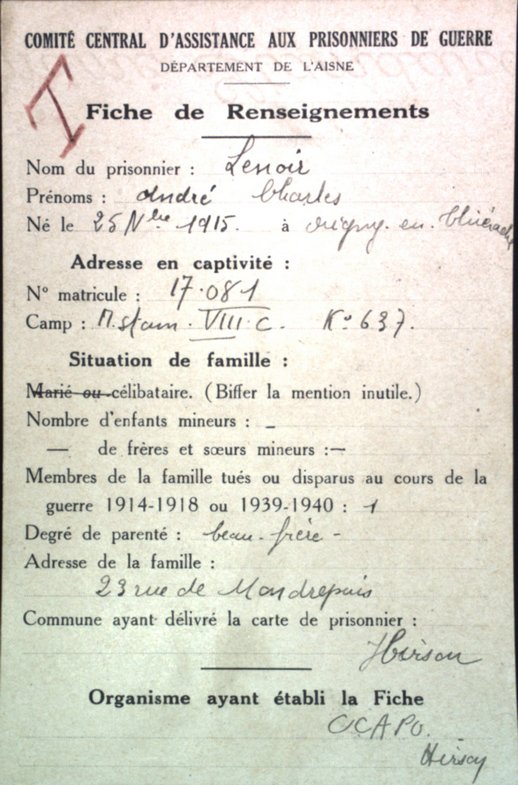 COMITÉ CENTRAL D'ASSISTANCE AUX PRISONNIERS DE GUERRE
DÉPARTEMENT DE L'AISNE
I
Fiche de Renseignements
Nom du prisonnier : Lenoir
Prénoms : André Charles
Né le 25 Nbre 1915. à Origny-en-Thiérache
Adresse en captivité :
N° matricule : 17.081
Camp : M. Stam. VIII. C. K° 637.
Situation de famille :
Marié ou célibataire. (Biffer la mention inutile.)
Nombre d'enfants mineurs : –
— de frères et sœurs mineurs : —
Membres de la famille tués ou disparus au cours de la
guerre 1914-1918 ou 1939-1940 : 1
Degré de parenté : beau-frère -
Adresse de la famille :
23 rue de Mondrepuis
Commune ayant délivré la carte de prisonnier :
Hirson
Organisme ayant établi la Fiche
CCAPG.
Hirson